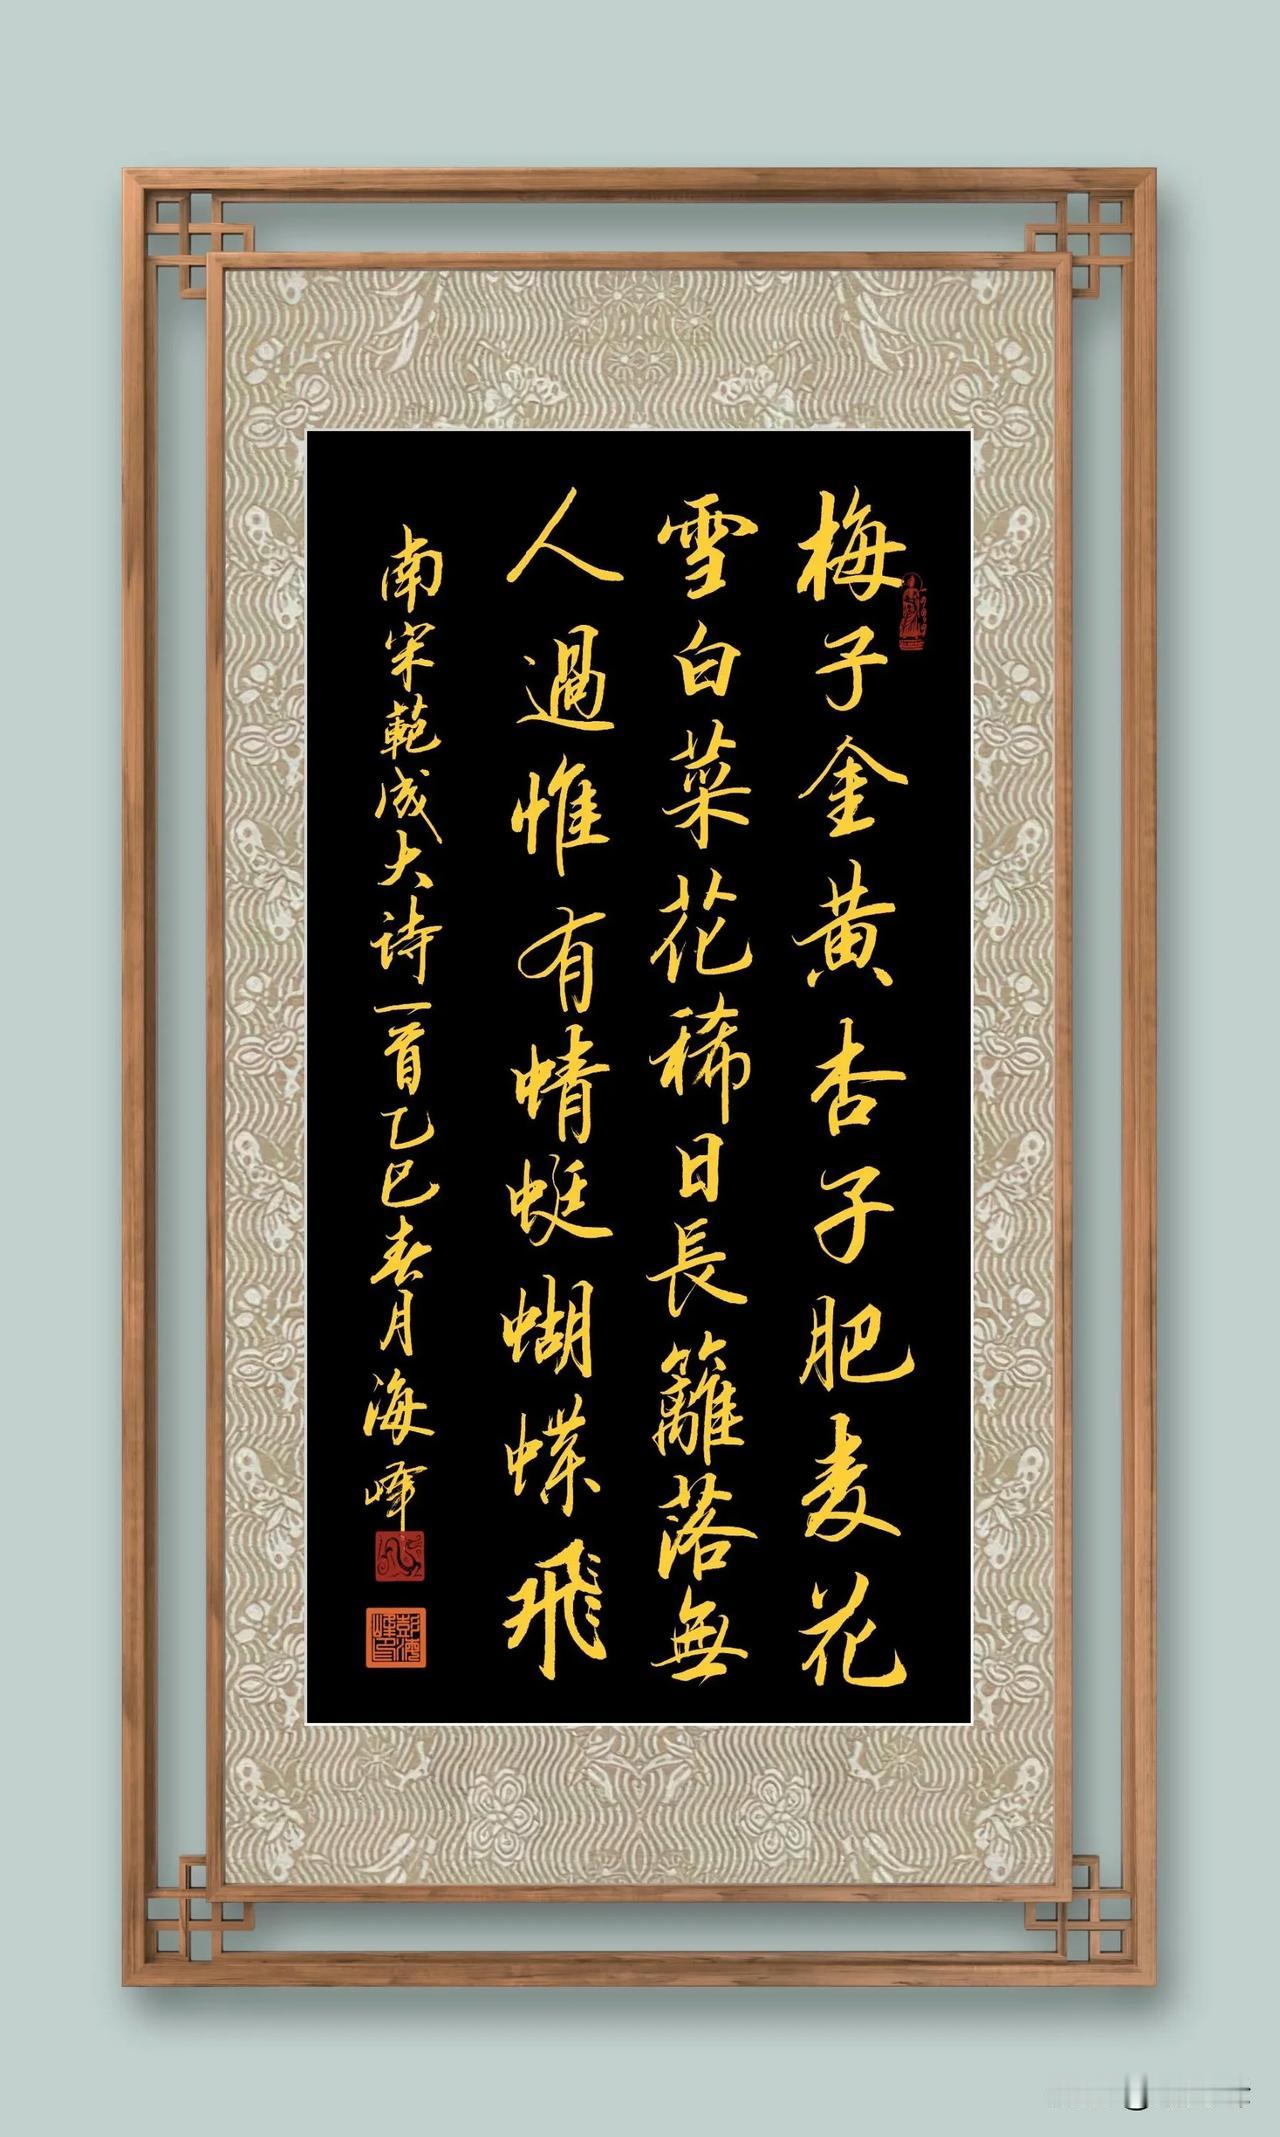 梅子金黄杏子肥麦花
雪白菜花稀日長籬落無
人過惟有蜻蜓蝴蝶飛
南宋範成大诗一首乙巳春月海峰
彭海峰印